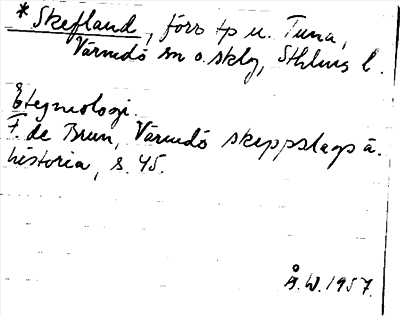 * Skefland, förr tp u. Tuna,
Värmdö sn o. sklg, Sthlms l.
Etymologi.
F. de Brun, Värmdö skeppslags ä.
historia, s. 45.
Å.W. 1957.